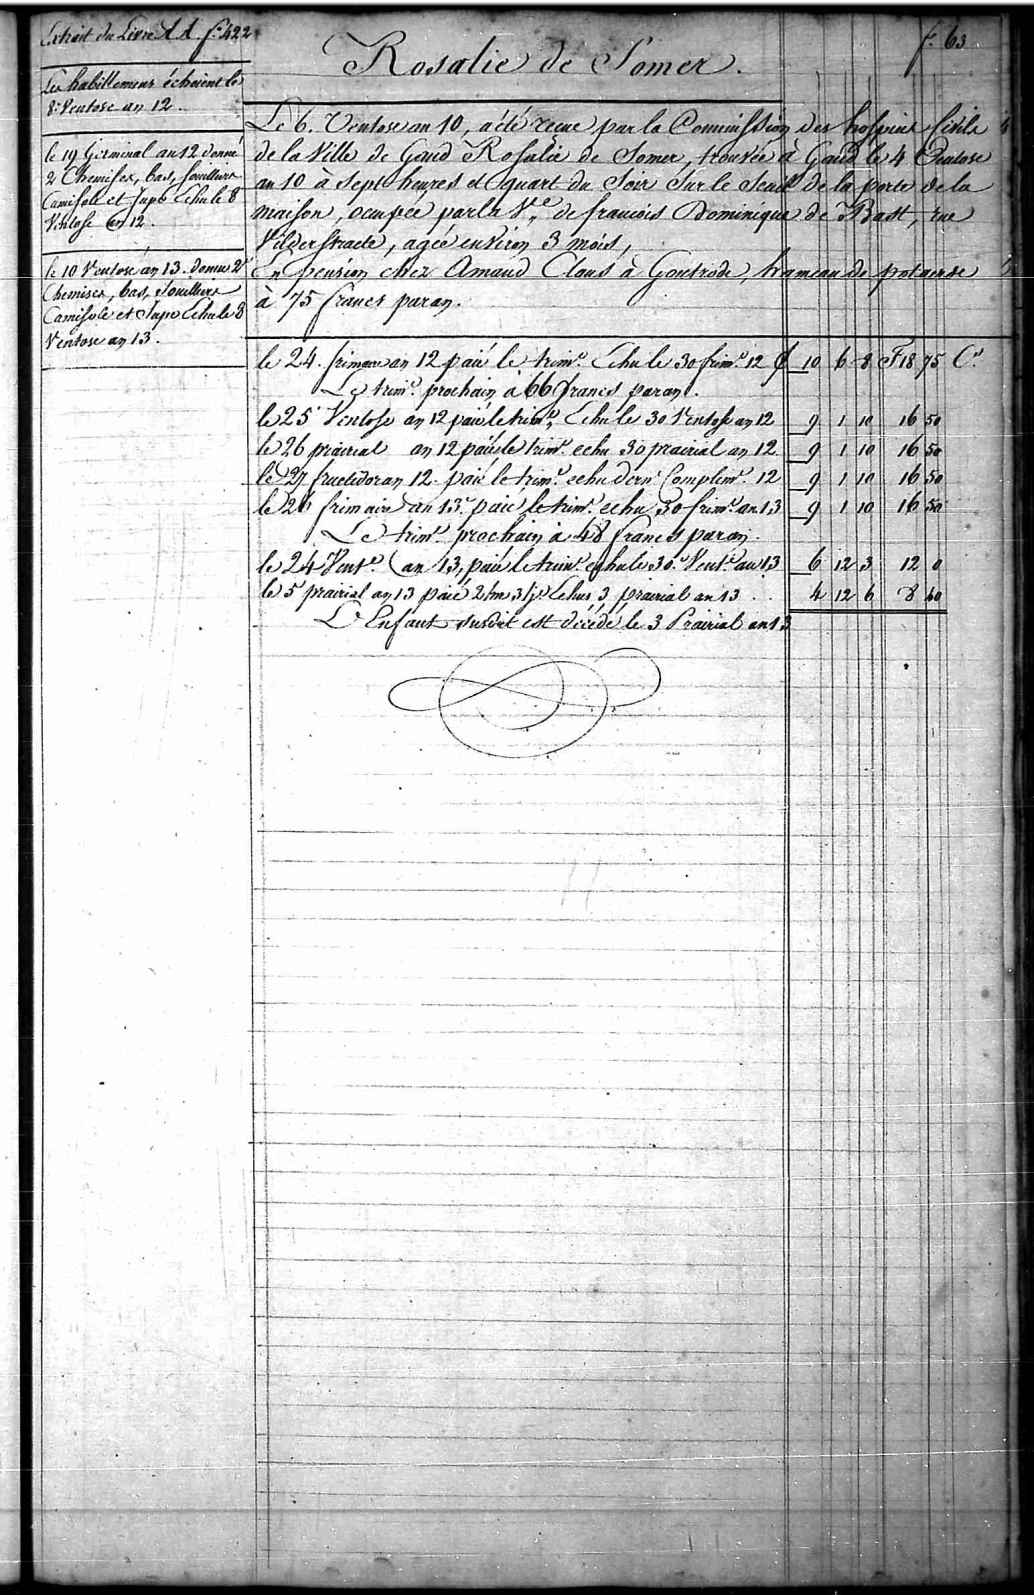 Extrait du Livre AA f.° 422
f. 63
Rosalie de Somer.
Les habillemens échoient le
8 Ventose an 12.
le 19 Germinal an 12 donné
2 Chemises, bas, souilliers
Camisole et Jupe Echu le 8
Ventose an 12.
le 10 Ventose an 13. donné 2
Chemises, bas, Souilliers
Camisole et Jupe Echu le 8
Ventose an 13.
Le 6. Ventose an 10, a été reçue par la Commission des hospices Civils
de la Ville de Gand Rosalie de Somer, trouvée à Gand le 4 Ventose
an 10 à sept heures et quart du Soir Sur le Seuil de la porte de la
maison, ocupée par la V.e de francois Dominique de Bast, rue
Vilderstraete, agée environ 3 mois,
En pension chez Amand Clous à Gontrode, hameau de potaerde
à 75 francs par an.
le 24. frimaire an 12 paié le trim.e Echu le 30 frim.e 12 £ 10 6 8 F 18 75 C.s
Le trim.e prochain à 66 francs par an.
le 25 Ventose an 12 paié le trim.e Echu le 30 Ventose an 12 9 1 10 16 50
le 26 prairial an 12 paié le trim.e echu 30 prairial an 12 9 1 10 16 50
le 27 fructidor an 12 paié le trim.e echu dern.r Complém.e 12 9 1 10 16 50
le 26 frimaire an 13 paié le trim.e echu 30 frim.e an 13 9 1 10 16 50
Le trim.e prochain à 48 francs par an.
le 24 Vent.e an 13, paié le trim.e echu le 30 Vent.e an 13 6 12 3 12 0
le 5 prairial an 13 paié 2/m 3/j.s Echus 3 prairial an 13 . . 4 12 6 8 40
L'Enfant susdit est décédé le 3 Prairial an 13